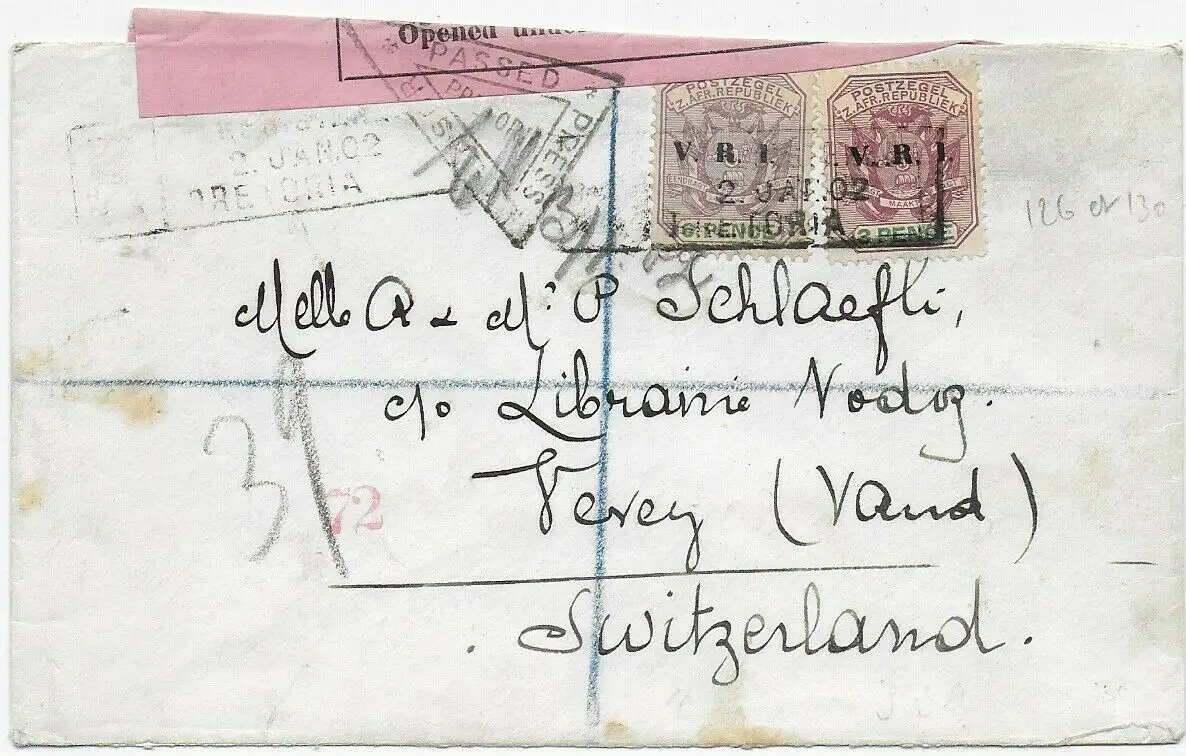 Opened under
PASSED
PRESS
2. JAN. 02
PRETORIA
POSTZEGEL
Z. AFR. REPUBLIEK
V. R. I.
PENCE
POSTZEGEL
Z. AFR. REPUBLIEK
V. R. I.
MAAKT
3 PENCE
2. JAN. 02
126 et 130
Melle A & Mr P Schlaefli,
c/o Librairie Nodoz.
Vevey (Vaud)
Switzerland.
39
72